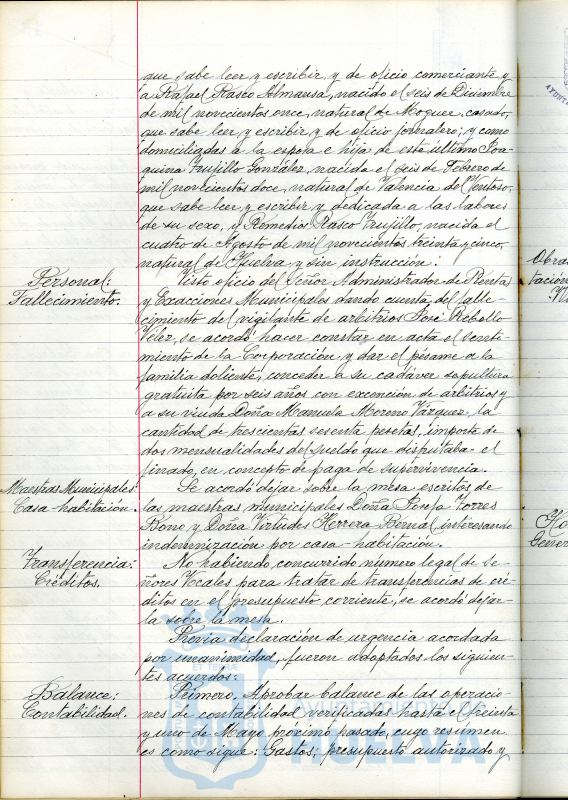 que sabe leer y escribir, y de oficio comerciante y
a Rafael Rasco Almansa, nacido el seis de Diciembre
de mil novecientos once, natural de Moguer, casado,
que sabe leer y escribir y de oficio jornalero; y como
domiciliadas a la esposa e hija de este último Joa-
quina Trujillo González, nacida el seis de Febrero de
mil novecientos doce, natural de Valencia del Ventoso,
que sabe leer y escribir y dedicada a las labores
de su sexo, y Remedios Rasco Trujillo, nacida el
cuatro de Agosto de mil novecientos treinta y cinco,
natural de Huelva y sin instrucción.
Personal:
Fallecimiento.
Visto oficio del Señor Administrador de Rentas
y Exacciones Municipales dando cuenta del falle-
cimiento del vigilante de arbitrios José Rebollo
Vélez, se acordó hacer constar en acta el senti-
miento de la Corporación y dar el pésame a la
familia doliente, conceder a su cadáver sepultura
gratuita por seis años con excención de arbitrios y
a su viuda Doña Manuela Moreno Vázquez, la
cantidad de trescientas sesenta pesetas, importe de
dos mensualidades del sueldo que disfrutaba el
finado, en concepto de paga de supervivencia.
Maestras Municipales:
Casa-habitación.
Se acordó dejar sobre la mesa escritos de
las maestras municipales Doña Josefa Torres
y Doña Virtudes Herrera Bernal interesando
indemnización por casa-habitación.
Transferencia:
Créditos.
No habiendo concurrido número legal de Se-
ñores Vocales para tratar de transferencias de cré-
ditos en el presupuesto corriente, se acordó dejar-
la sobre la mesa.
Previa declaración de urgencia acordada
por unanimidad, fueron adoptados los siguien-
tes acuerdos:
Balance:
Contabilidad.
Primero. Aprobar balance de las operacio-
nes de contabilidad verificadas hasta el treinta
y uno de Mayo próximo pasado, cuyo resumen
es como sigue: Gastos; presupuesto autorizado y